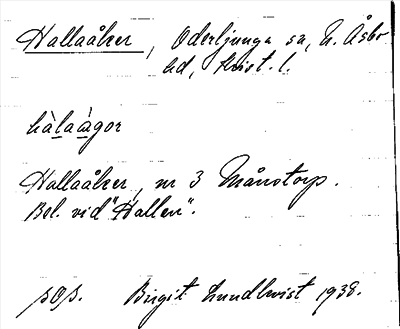 Hallaåker, Oderljunga sn, N. Åsbo
hd, Krist. l.
hàlaàgor
Hallaåker, nr 3 Månstorp.
Bel. vid "Hallen".
Birgit Lundkvist 1938.